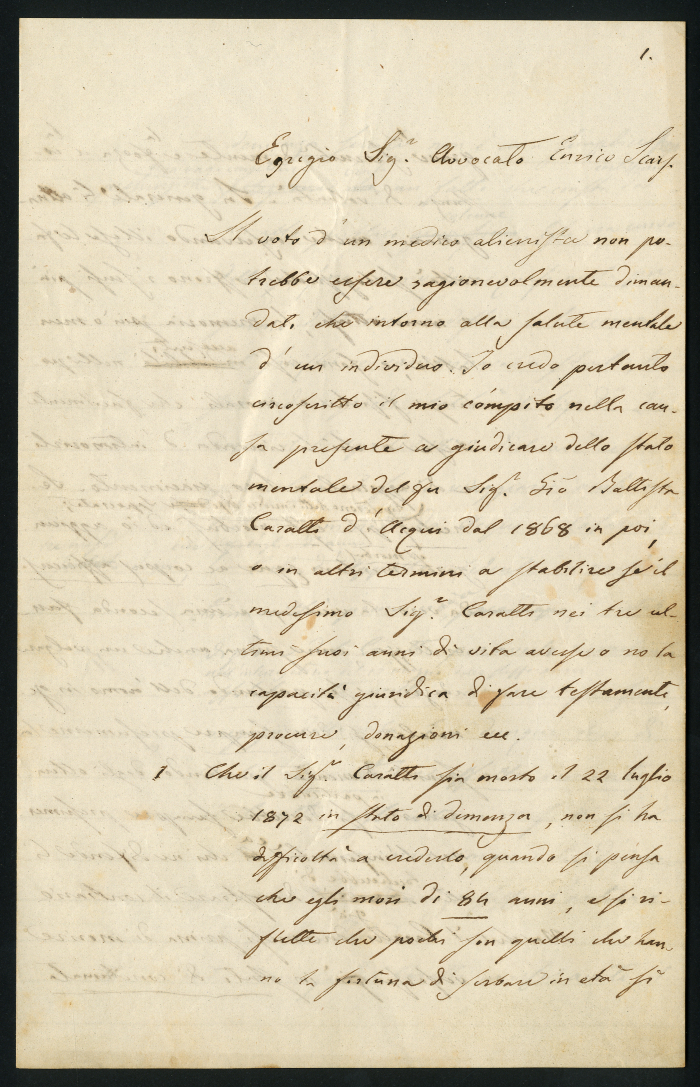 1.
Egregio Sig.r Avvocato Enrico Scarf.
Il voto d'un medico alienista non po-
trebbe essere ragionevolmente diman-
dato che intorno alla salute mentale
d'un individuo. Io credo pertanto
circoscritto il mio cómpito nella cau-
sa presente a giudicare dello stato
mentale del fu Sig.r Gio Battista
Caratti d'Acqui dal 1868 in poi,
o in altri termini a stabilire se il
medesimo Sig.r Caratti nei tre ul-
timi suoi anni di vita avesse o no la
capacità giuridica di fare testamenti,
procure, donazioni ecc.
1 Che il Sig.r Caratti sia morto il 22 luglio
1872 in stato di demenza, non si ha
difficoltà a crederlo, quando si pensa
che egli morì di 84 anni, e si ri-
flette che pochi son quelli che han-
no la fortuna di serbare in età sì